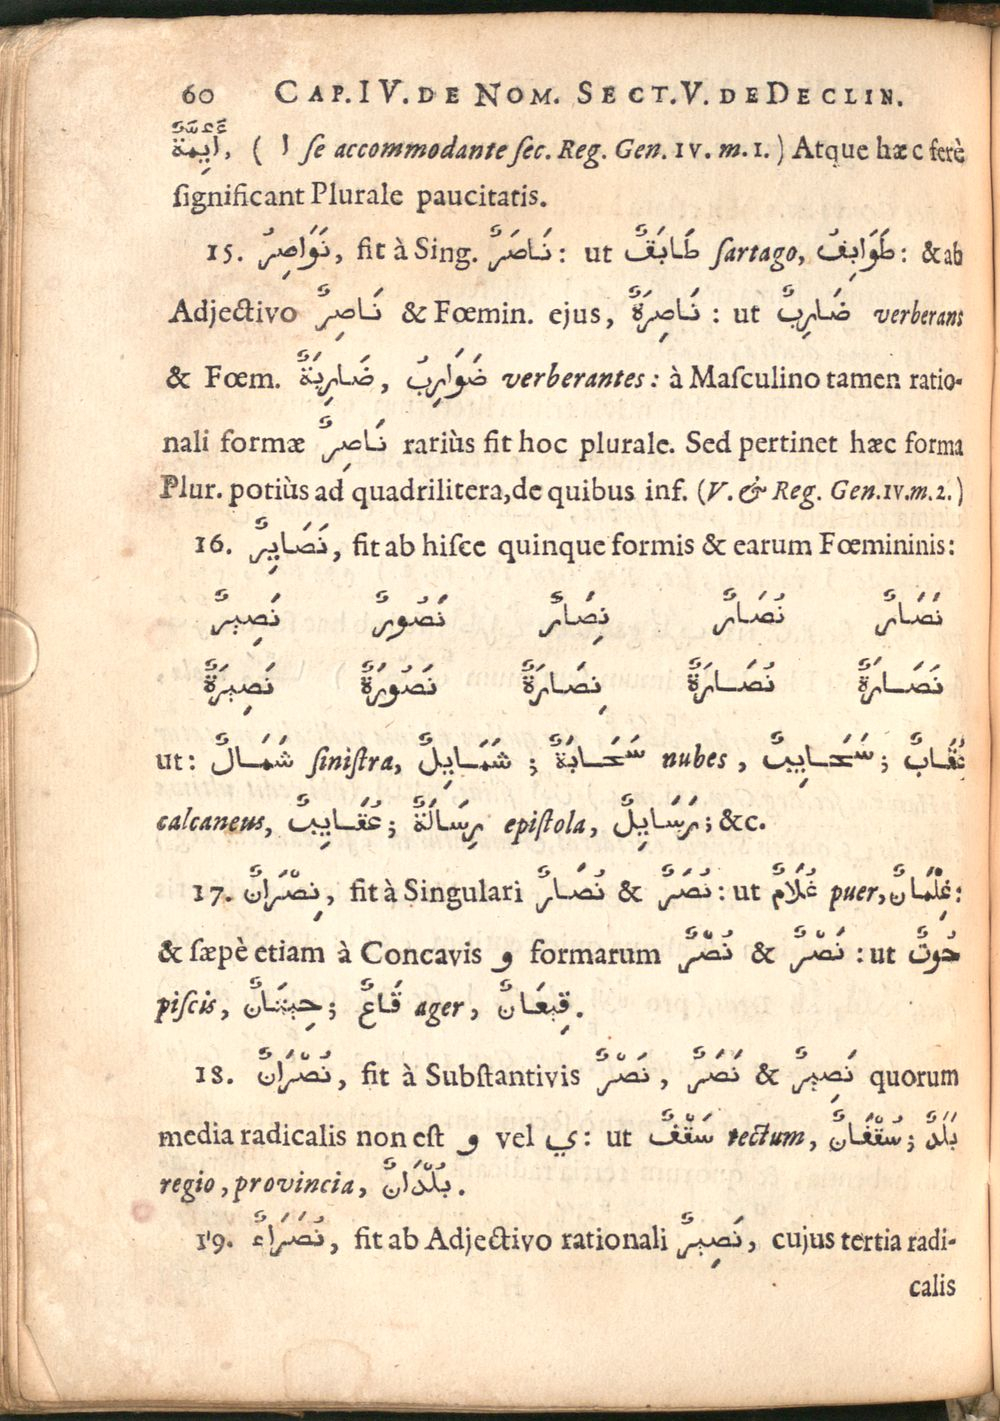 60 CAP. IV. DE NOM. SECT. V. DE DECLIN.
أَيِمَّةٌ, ( ا ſe accommodante ſec. Reg. Gen. IV. m. 1. ) Atque hæc ferè
ſignificant Plurale paucitatis.
15. نَوَاصِرُ, fit à Sing. نَاصَرٌ: ut طَابَقٌ ſartago, طَوَابِقُ: & ab
Adjectivo نَاصِرٌ & Fœmin. ejus, نَاصِرَةٌ: ut ضَارِبٌ verberans
& Fœm. ضَارِبَةٌ, ضَوَارِبُ verberantes: à Maſculino tamen ratio-
nali formæ نَاصِرٌ rariùs fit hoc plurale. Sed pertinet hæc forma
Plur. potiùs ad quadrilitera, de quibus inf. (V. & Reg. Gen. IV. m. 2.)
16. نَصَايِرٌ, fit ab hiſce quinque formis & earum Fœmininis:
نَصَارٌ نُصَارٌ نِصَارٌ نَصُورٌ نَصِيرٌ
نَصَارَةٌ نُصَارَةٌ نِصَارَةٌ نَصُورَةٌ نَصِيرَةٌ
ut: شَمَالٌ ſiniſtra, شَمَايِلٌ; سَحَابَةٌ nubes, سَحَايِبٌ; عُقَابٌ
calcaneus, عُقَايِبٌ; رِسَالَةٌ epiſtola, رَسَايِلٌ; &c.
17. نِصْرَانٌ, fit à Singulari نُصَارٌ & نُصَرٌ: ut غُلَامٌ puer, غِلْمَانٌ:
& ſæpè etiam à Concavis و formarum نُصْرٌ & نَصْرٌ: ut حُوتٌ
piſcis, حِيتَانٌ; قَاعٌ ager, قِيعَانٌ.
18. نُصْرَانٌ, fit à Subſtantivis نَصْرٌ, نَصَرٌ & نَصِيرٌ quorum
media radicalis non eſt و vel ي: ut سَقْفٌ tectum, سُقْفَانٌ; بَلَدٌ
regio, provincia, بُلْدَانٌ.
19. نُصَرَاءٌ, fit ab Adjectivo rationali نَصِيرٌ, cujus tertia radi-
calis